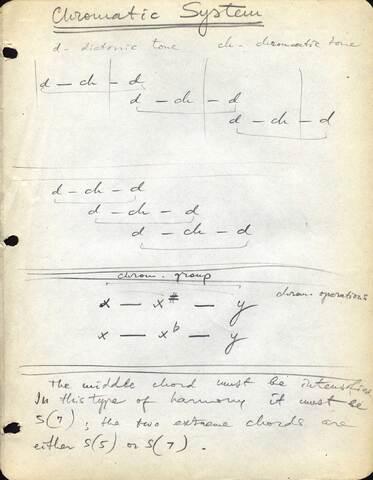 Chromatic System
d - diatonic tone ch - chromatic tone
d - ch - d
d - ch - d
d - ch - d
d - ch - d
d - ch - d
d - ch - d
chrom. group
x — x# — y chrom. operations
x — xb — y
The middle chord must be intensified
In this type of harmony it must be
S(7); the two extreme chords are
either S(5) or S(7).